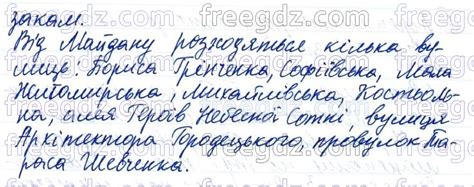 закам.
Від Майдану розходяться кілька ву-
лиць: Бориса Грінченка, Софіївська, Мала
Житомирська, Михайлівська, Костьоль-
на, алея Героїв Небесної Сотні, вулиця
Архітектора Городецького, провулок Та-
раса Шевченка.